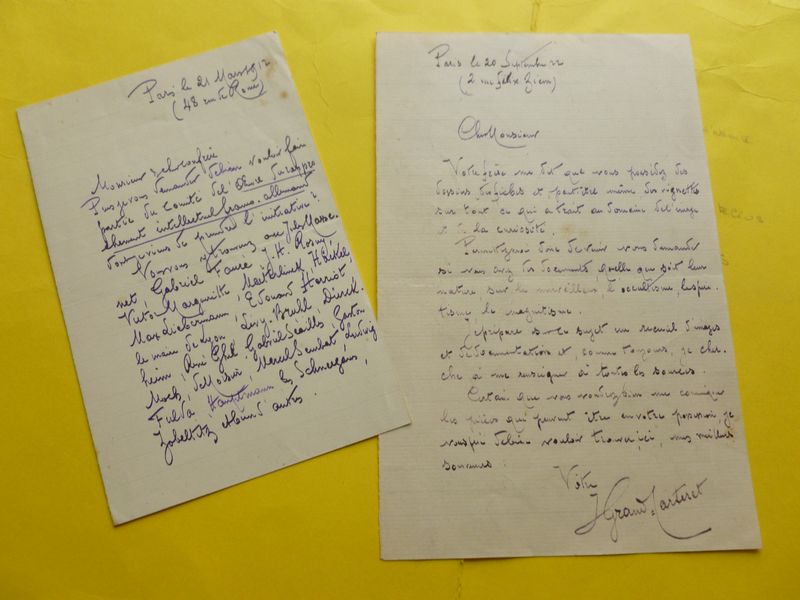 Paris le 21 Mars 1912
(48 rue de Rome)
Monsieur et cher confrère
Puis-je vous demander de bien vouloir faire
partie du Comité de l'Œuvre du rappro
chement intellectuel franco-allemand
dont je viens de prendre l'initiative ?
Vous vous y trouverez avec Jules Masse-
net, Gabriel Fauré, J. H. Rosny,
Victor Margueritte, Maeterlinck, Häckel,
Max Liebermann, Edouard Herriot,
le maire de Lyon, Levy-Bruhl, Dierck-
heim, René Ghil, Gabriel Séailles, Gaston
Moch, de Molinari, Marcel Sembat, Ludwig
Fulda, Hauptmann, les Schneegans,
Zobeltitz et bien d'autres.
Paris le 20 Septembre 22
(2 rue Félix Ziem)
Cher Monsieur
Votre frère me dit que vous possédez des
dessins, des fiches et peut être même des vignettes
sur tout ce qui a trait au domaine de l'image
et de la curiosité.
Permettez moi donc de venir vous demander
si vous avez des documents, quelle que soit leur
nature sur le merveilleux, l'occultisme, le spiri
tisme, le magnétisme.
Je prépare sur ce sujet un recueil d'images
et de documentation et, comme toujours, je cher-
che à me renseigner à toutes les sources.
Certain que vous voudrez bien me communiquer
les pièces qui peuvent être en votre possession je
vous prie de bien vouloir trouver ici, mes meilleurs
souvenirs.
Votre
J Grand-Carteret